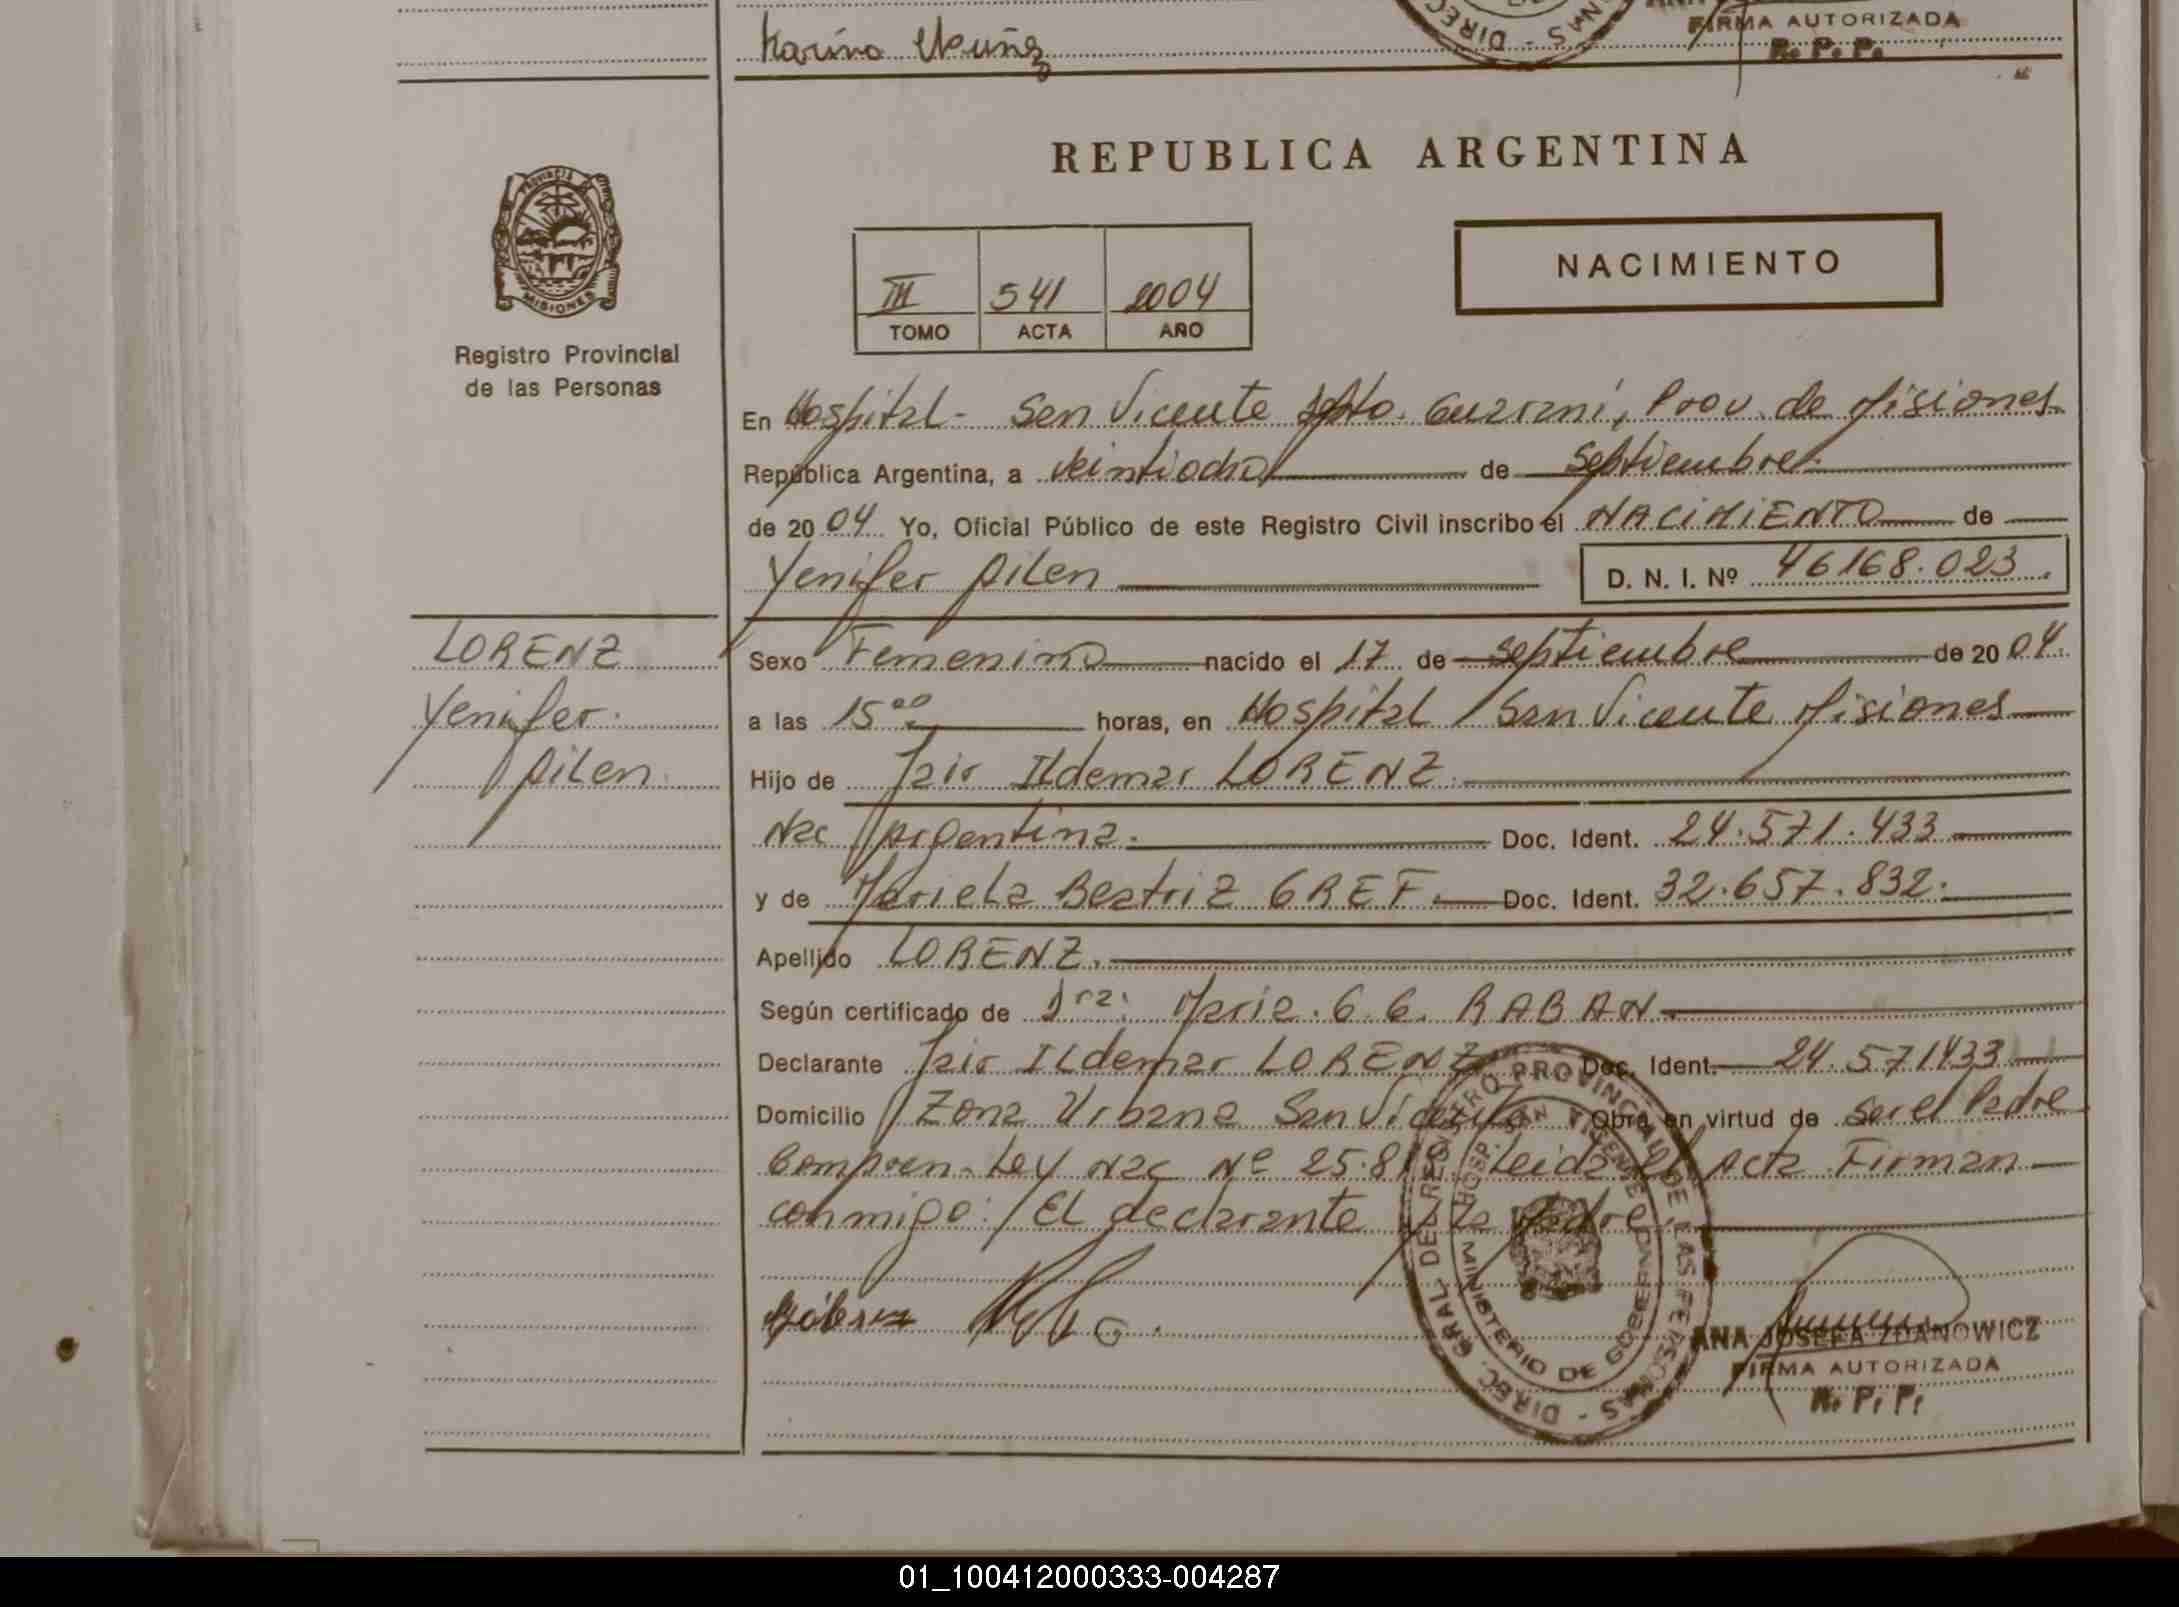 Karina
DIREC
FIRMA AUTORIZADA
R. P. P.
PROVINCIA
MISIONES
Registro Provincial
de las Personas
REPUBLICA ARGENTINA
NACIMIENTO
III 541 2004
TOMO ACTA AÑO
En Hospital - San Vicente Dpto. Guarani, Prov. de Misiones
República Argentina, a Veintiocho de Septiembre.
de 2004 Yo, Oficial Público de este Registro Civil inscribo el NACIMIENTO de
Yenifer Ailen D. N. I. Nº 46168.023.
LORENZ
Yenifer.
Ailen.
Sexo Femenino nacido el 17 de septiembre de 2004.
a las 15⁰⁰ horas, en Hospital San Vicente Misiones
Hijo de Jair Ildemar LORENZ.
Nac Argentina. Doc. Ident. 24.571.433
y de Mariela Beatriz GREF. Doc. Ident. 32.657.832.
Apellido LORENZ.
Según certificado de Dra: Maria. G. G. RABAN
Declarante Jair ILdemar LORENZ Doc. Ident. 24.571433
Domicilio Zona Urbana San Vicente Obra en virtud de ser el Padre
Compren. Ley Nac Nº 25.81 Leida el Acta Firman
conmigo: El declarante y la Madre.
DIREC. GRAL. DEL REGISTRO PROVINCIAL DE LAS PERSONAS
HOSP. SAN VICENTE
MINISTERIO DE GOBIERNO
ANA JOSEFA ZDANOWICZ
FIRMA AUTORIZADA
R. P. P.
01_100412000333-004287